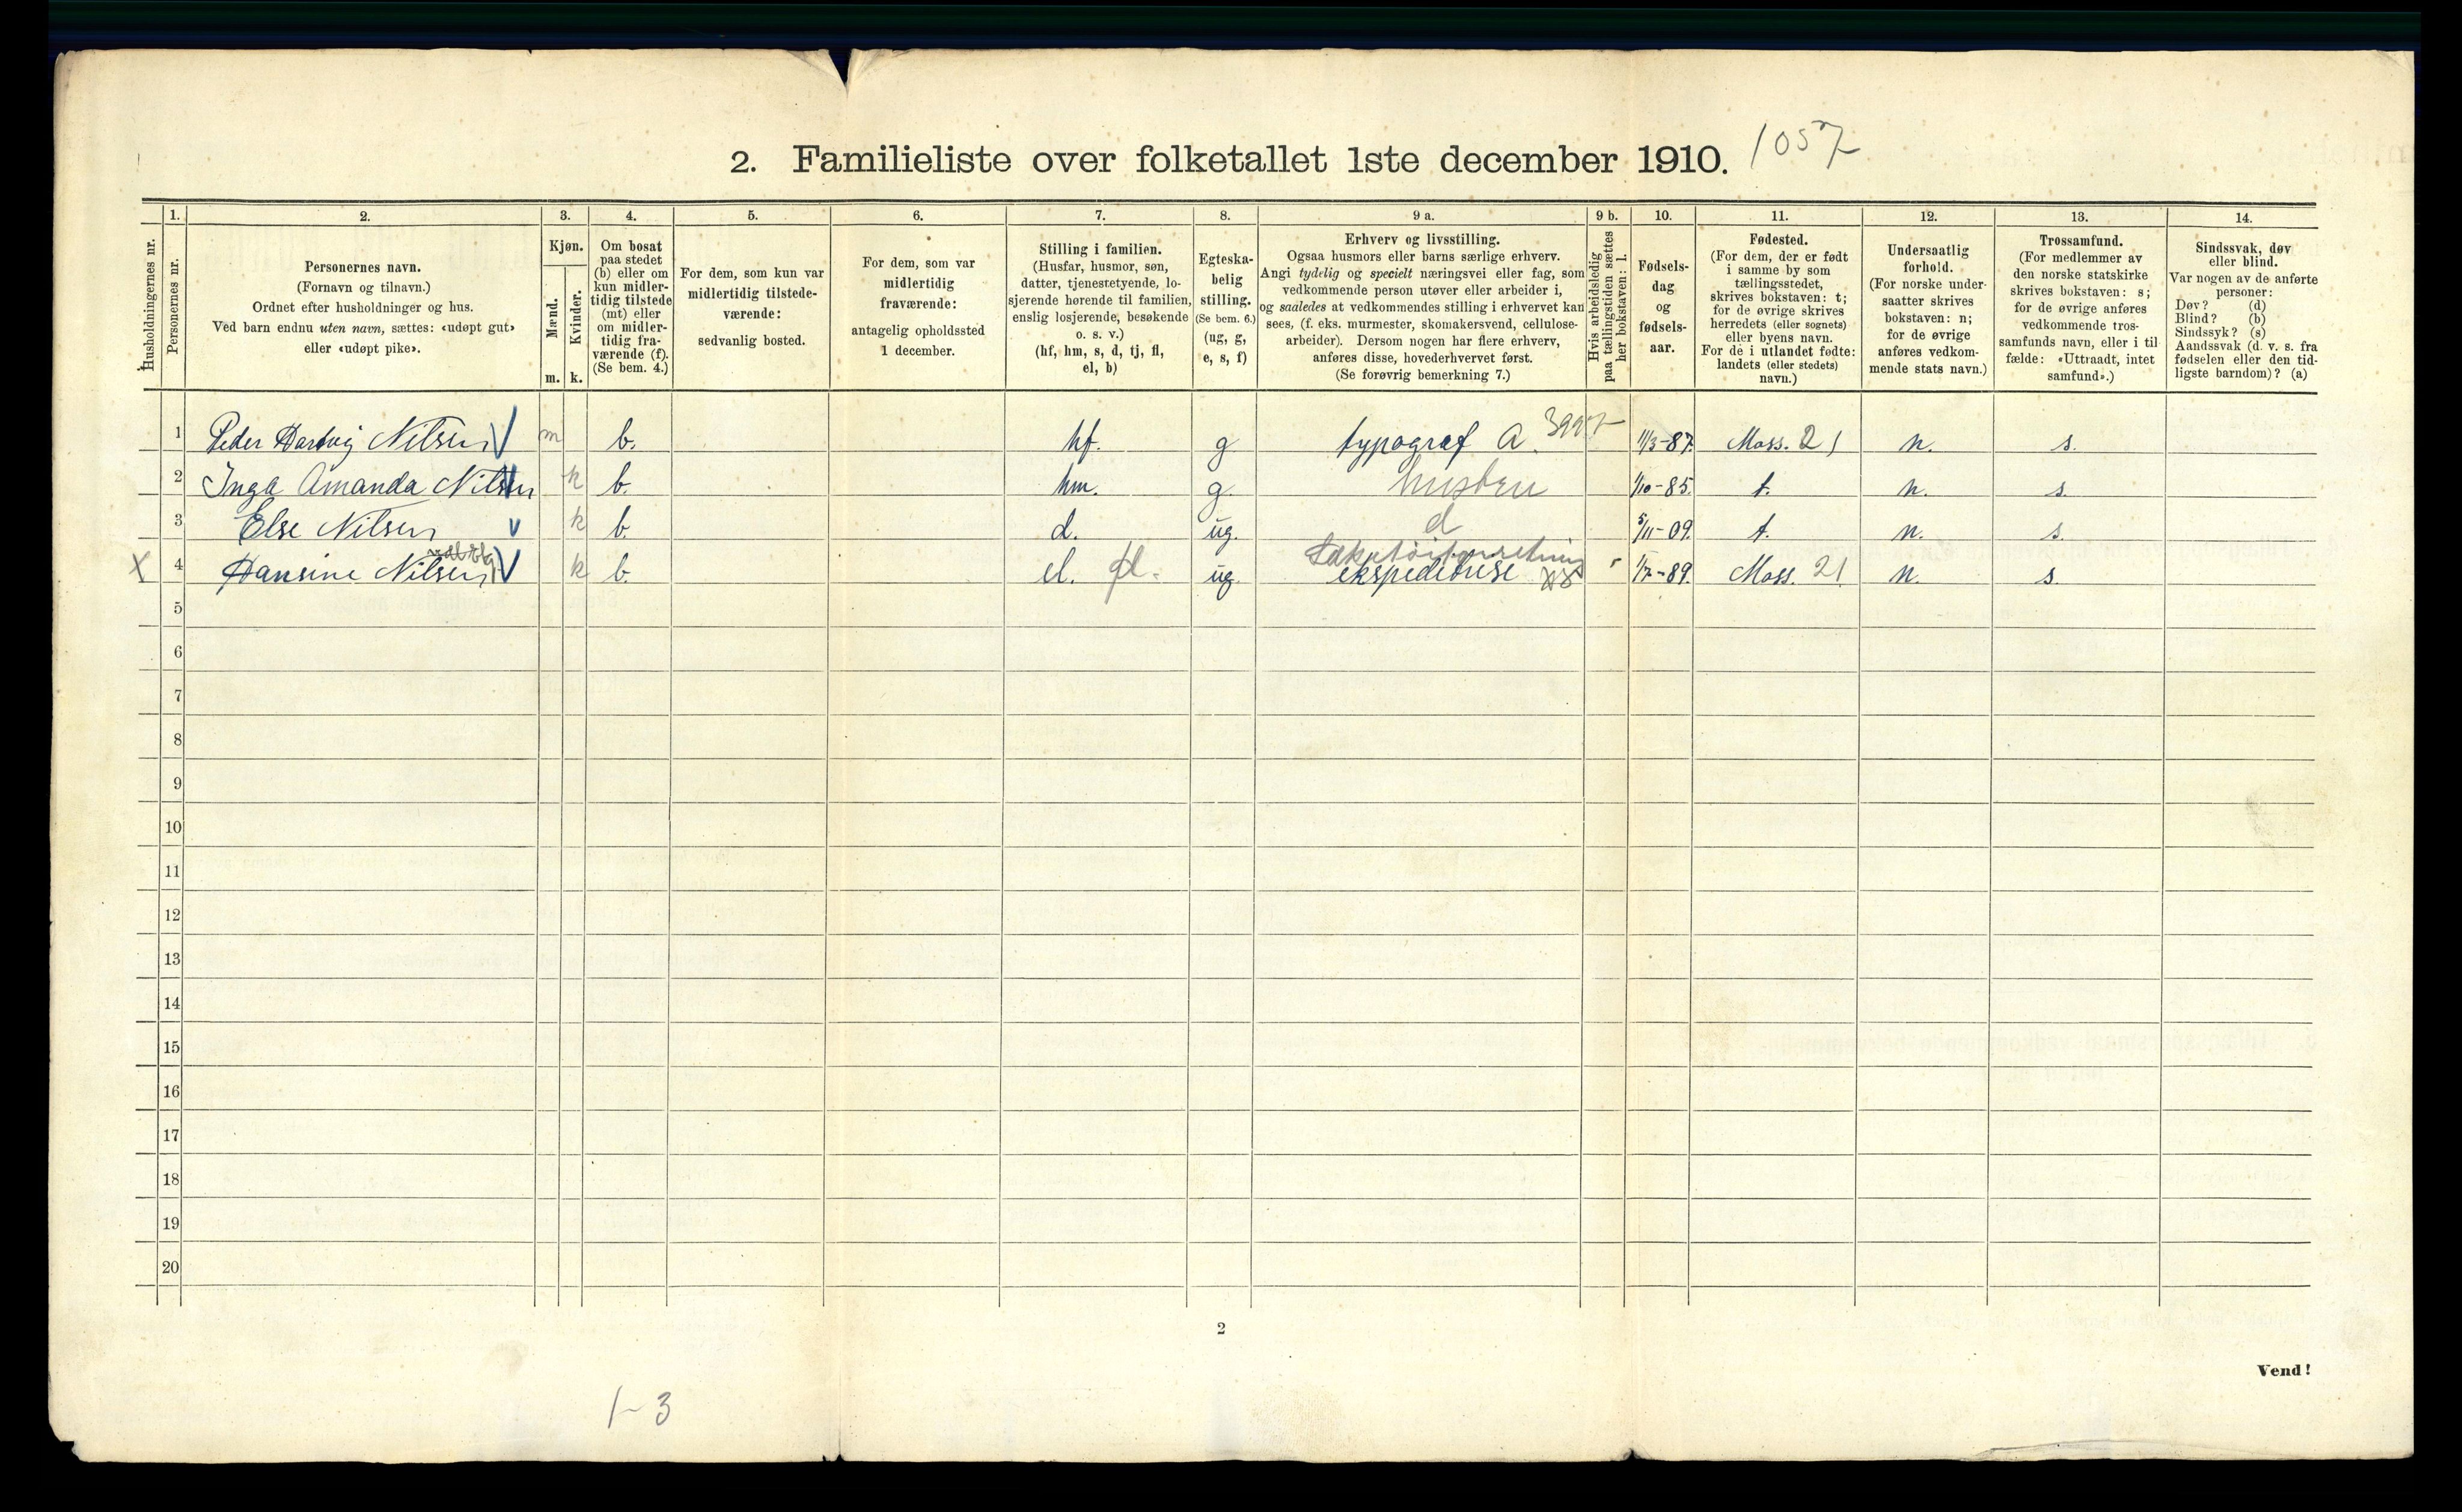 2. Familieliste over folketallet 1ste december 1910. 1057
1. 2. 3. 4. 5. 6. 7. 8. 9 a. 9 b. 10. 11. 12. 13. 14.
Husholdningernes nr.
Personernes nr.
Personernes navn.
(Fornavn og tilnavn.)
Ordnet efter husholdninger og hus.
Ved barn endnu uten navn, sættes: «udøpt gut»
eller «udøpt pike».
Kjøn.
Mænd.
Kvinder.
m. k.
Om bosat
paa stedet
(b) eller om
kun midler-
tidig tilstede
(mt) eller
om midler-
tidig fra-
værende (f).
(Se bem. 4.)
For dem, som kun var
midlertidig tilstede-
værende:
sedvanlig bosted.
For dem, som var
midlertidig
fraværende:
antagelig opholdssted
1 december.
Stilling i familien.
(Husfar, husmor, søn,
datter, tjenestetyende, lo-
sjerende hørende til familien,
enslig losjerende, besøkende
o. s. v.)
(hf, hm, s, d, tj, fl,
el, b)
Egteska-
belig
stilling.
(Se bem. 6.)
(ug, g,
e, s, f)
Erhverv og livsstilling.
Ogsaa husmors eller barns særlige erhverv.
Angi tydelig og specielt næringsvei eller fag, som
vedkommende person utøver eller arbeider i,
og saaledes at vedkommendes stilling i erhvervet kan
sees, (f. eks. murmester, skomakersvend, cellulose-
arbeider). Dersom nogen har flere erhverv,
anføres disse, hovederhvervet først.
(Se forøvrig bemerkning 7.)
Hvis arbeidsledig
paa tællingstiden sættes
her bokstaven: l.
Fødsels-
dag
og
fødsels-
aar.
Fødested.
(For dem, der er født
i samme by som
tællingsstedet,
skrives bokstaven: t;
for de øvrige skrives
herredets (eller sognets)
eller byens navn.
For de i utlandet fødte:
landets (eller stedets)
navn.)
Undersaatlig
forhold.
(For norske under-
saatter skrives
bokstaven: n;
for de øvrige
anføres vedkom-
mende stats navn.)
Trossamfund.
(For medlemmer av
den norske statskirke
skrives bokstaven: s;
for de øvrige anføres
vedkommende tros-
samfunds navn, eller i til-
fælde: «Uttraadt, intet
samfund».)
Sindssvak, døv
eller blind.
Var nogen av de anførte
personer:
Døv? (d)
Blind? (b)
Sindssyk? (s)
Aandssvak (d. v. s. fra
fødselen eller den tid-
ligste barndom)? (a)
1 Peder Hartvig Nilsen V m b. hf. g. typograf A. 3997 11/3-87. Moss. 21 n. s.
2 Inga Amanda Nilsen V k b. hm. g. hustru 1/10-85. t. n. s.
3 Else Nilsen v k b. d. ug. d 5/11-09. t. n. s.
X 4 Hansine Nilsen V k b. el. fl. ug. ekspeditrise 1/7-89. Moss. 21. n. s.
5
6
7
8
9
10
11
12
13
14
15
16
17
18
19
20
2
Vend!
1-3